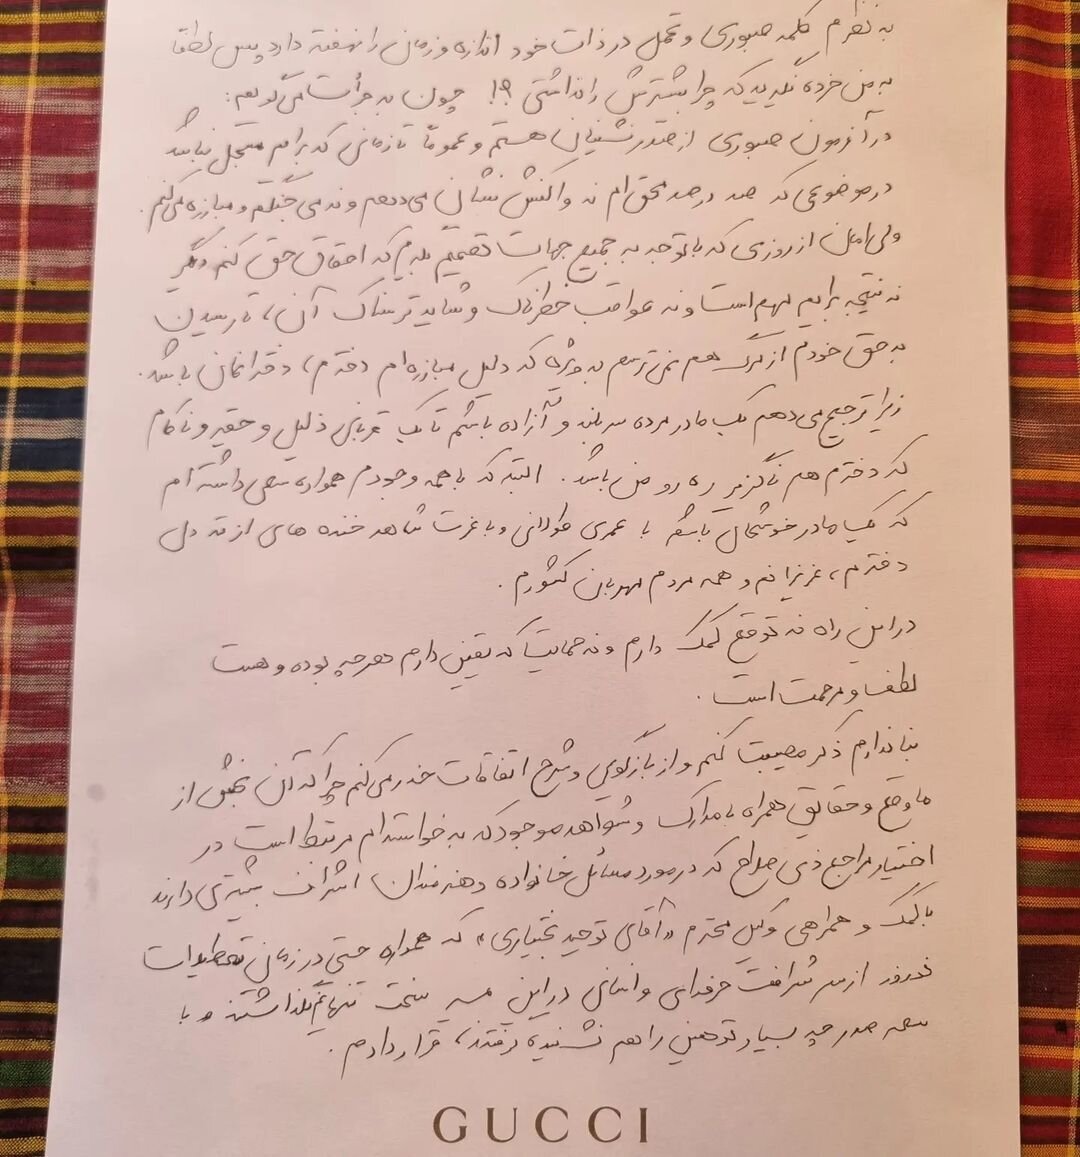 به نظرم کلمه صبوری و تحمل در ذات خود اندازه و زمان را نهفته دارد پس لطفا
به من خرده نگیرید که چرا بیشترش را نداشتی ؟! چون به جرأت می‌گویم:
در آزمون صبوری از صدرنشینان هستم و عموماً تا زمانی که برایم مسجل نباشد
در موضوعی که صد در صد محق ام نه واکنش نشان می‌دهم و نه می‌جنگم و مبارزه می‌کنم.
ولی امان از روزی که با توجه به جمیع جهات تصمیم بگیرم که احقاق حق کنم دیگر
نه نتیجه برایم مهم است و نه عواقب خطرناک و شاید ترسناک آن، تا رسیدن
به حق خودم از مرگ هم نمی‌ترسم به ویژه که دلیل مبارزه‌ام دخترم، دخترانمان باشد.
زیرا ترجیح می‌دهم یک مادر مرده سربلند و آزاده باشم تا یک قربانی ذلیل و حقیر و ناکام
که دخترم هم ناگزیر ره رو من باشد. البته که با همه وجودم همواره سعی داشته ام
که یک مادر خوشحال باشم با عمری طولانی و با عزت شاهد خنده های از ته دل
دخترم، عزیزانم و همه مردم مهربان کشورم.
در این راه نه توقع کمک دارم و نه حمایت که یقین دارم هر چه بوده و هست
لطف و مرحمت است.
بنا ندارم ذکر مصیبت کنم و از بازگویی و شرح اتفاقات حذر می‌کنم چرا که آن بخش از
ماوقع و حقایق همراه با مدارک و شواهد موجود که به خواسته‌ام مرتبط است در
اختیار مراجع ذی صلاح که در مورد مسائل خانواده و هنرمندان اشراف بیشتری دارند
با کمک و همراهی وکیل محترم «آقای توحید بختیاری» که همواره حتی در زمان تعطیلات
نوروز از سر شرافت حرفه‌ای و انسانی در این مسیر سخت تنهایم نگذاشتند و با
سعه صدر چه بسیار توهین را هم نشنیده گرفتند، قرار دادم.
GUCCI